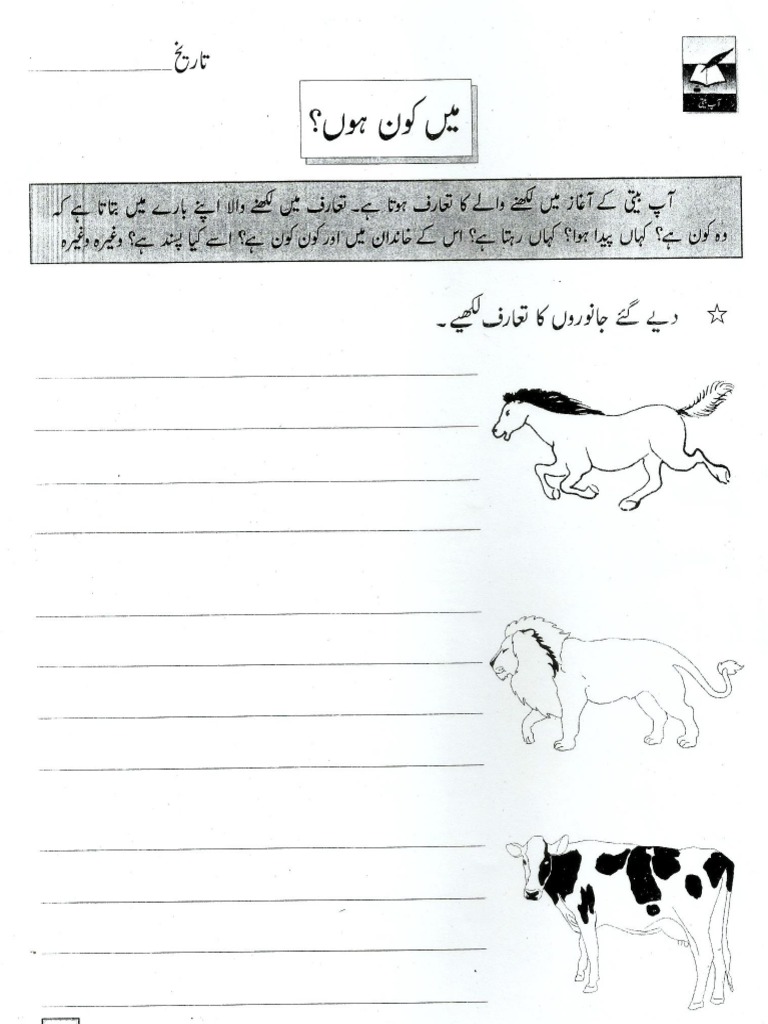 تاریخ
آپ بیتی
میں کون ہوں؟
آپ بیتی کے آغاز میں لکھنے والے کا تعارف ہوتا ہے۔ تعارف میں لکھنے والا اپنے بارے میں بتاتا ہے کہ
وہ کون ہے؟ کہاں پیدا ہوا؟ کہاں رہتا ہے؟ اس کے خاندان میں اور کون کون ہے؟ اسے کیا پسند ہے؟ وغیرہ وغیرہ
☆ دیے گئے جانوروں کا تعارف لکھیے۔